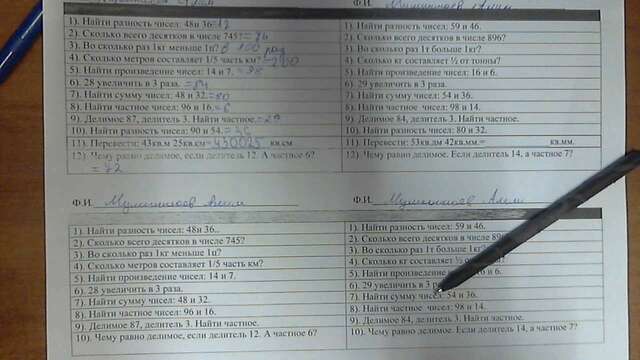 Ф.И.
1). Найти разность чисел: 48и 36. 12
2). Сколько всего десятков в числе 745? = 74
3). Во сколько раз 1кг меньше 1ц? в 100 раз
4). Сколько метров составляет 1/5 часть км? = 200
5). Найти произведение чисел: 14 и 7. = 98
6). 28 увеличить в 3 раза. = 84
7). Найти сумму чисел: 48 и 32. = 80
8). Найти частное чисел: 96 и 16. = 6
9). Делимое 87, делитель 3. Найти частное. = 29
10). Найти разность чисел: 90 и 54. = 36
11). Перевести: 43кв.м 25кв.см= 430025 кв.см
12). Чему равно делимое, если делитель 12. А частное 6?
= 72
1). Найти разность чисел: 59 и 46.
2). Сколько всего десятков в числе 896?
3). Во сколько раз 1т больше 1кг?
4). Сколько кг составляет ½ от тонны?
5). Найти произведение чисел: 16 и 6.
6). 29 увеличить в 3 раза.
7). Найти сумму чисел: 54 и 36.
8). Найти частное чисел: 98 и 14.
9). Делимое 84, делитель 3. Найти частное.
10). Найти разность чисел: 80 и 32.
11). Перевести: 53кв.дм 42кв.мм.= кв.мм.
12). Чему равно делимое. Если делитель 14, а частное 7?
Ф.И.
1). Найти разность чисел: 48и 36..
2). Сколько всего десятков в числе 745?
3). Во сколько раз 1кг меньше 1ц?
4). Сколько метров составляет 1/5 часть км?
5). Найти произведение чисел: 14 и 7.
6). 28 увеличить в 3 раза.
7). Найти сумму чисел: 48 и 32.
8). Найти частное чисел: 96 и 16.
9). Делимое 87, делитель 3. Найти частное.
10). Чему равно делимое, если делитель 12. А частное 6?
Ф.И.
1). Найти разность чисел: 59 и 46.
2). Сколько всего десятков в числе
3). Во сколько раз 1т больше 1кг
4). Сколько кг составляет ½
5). Найти произведение 6 и 6.
6). 29 увеличить в 3
7). Найти сумму чисел: 54 и 36.
8). Найти частное чисел: 98 и 14.
9). Делимое 84, делитель 3. Найти частное.
10). Чему равно делимое. Если делитель 14, а частное 7?